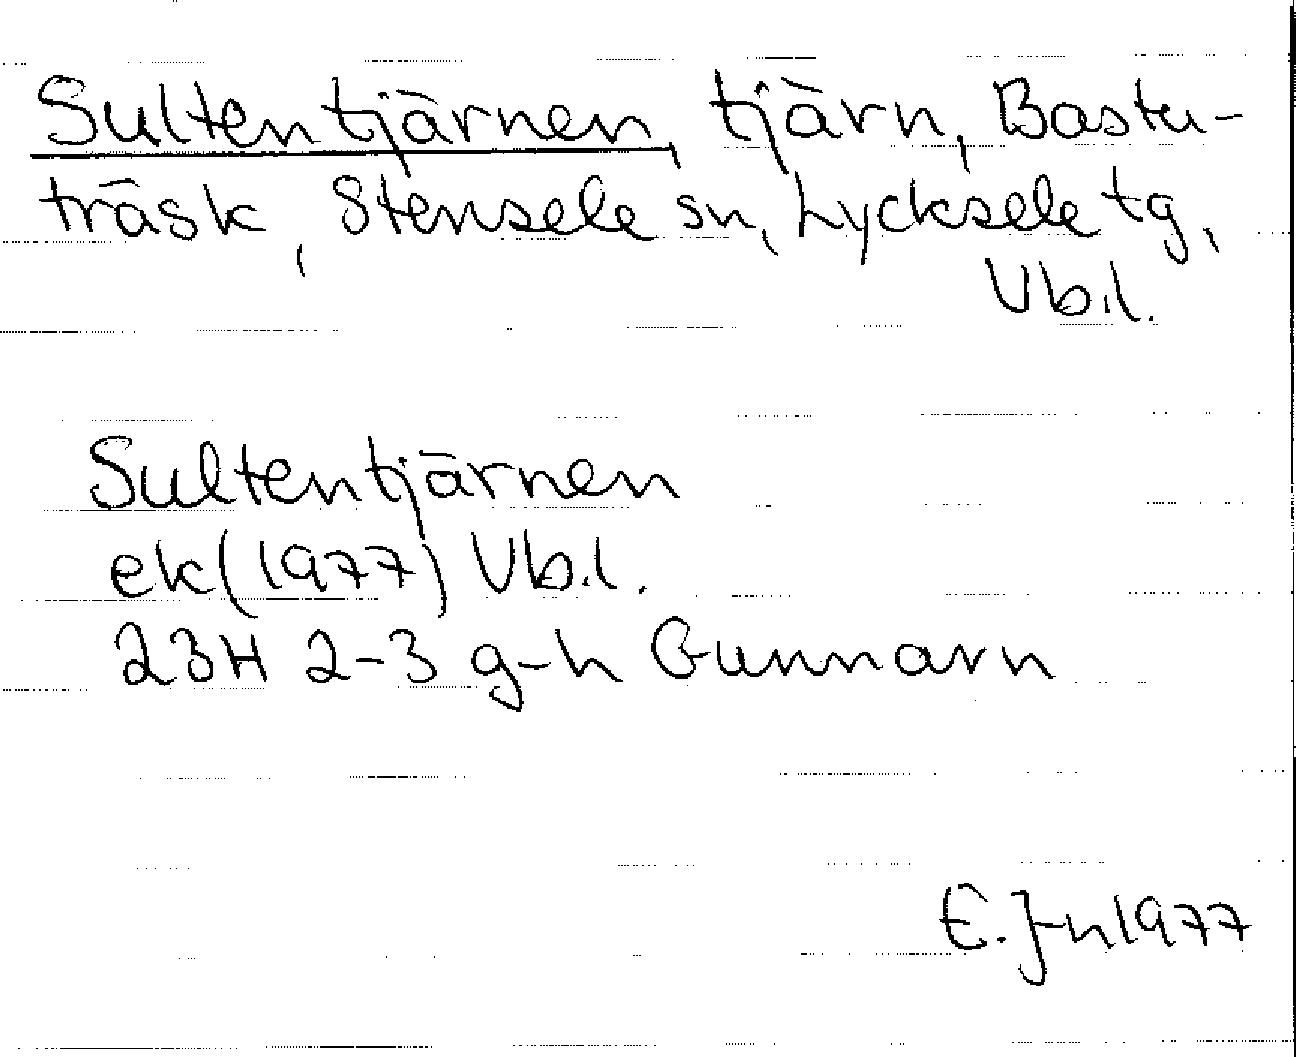 Sultentjärnen, tjärn, Bastu-
träsk, Stensele sn, Lycksele tg,
Vb.l.
Sultentjärnen
ek(1977) Vb.l.
23H 2-3 g-h Gunnarn
E. Jn 1977